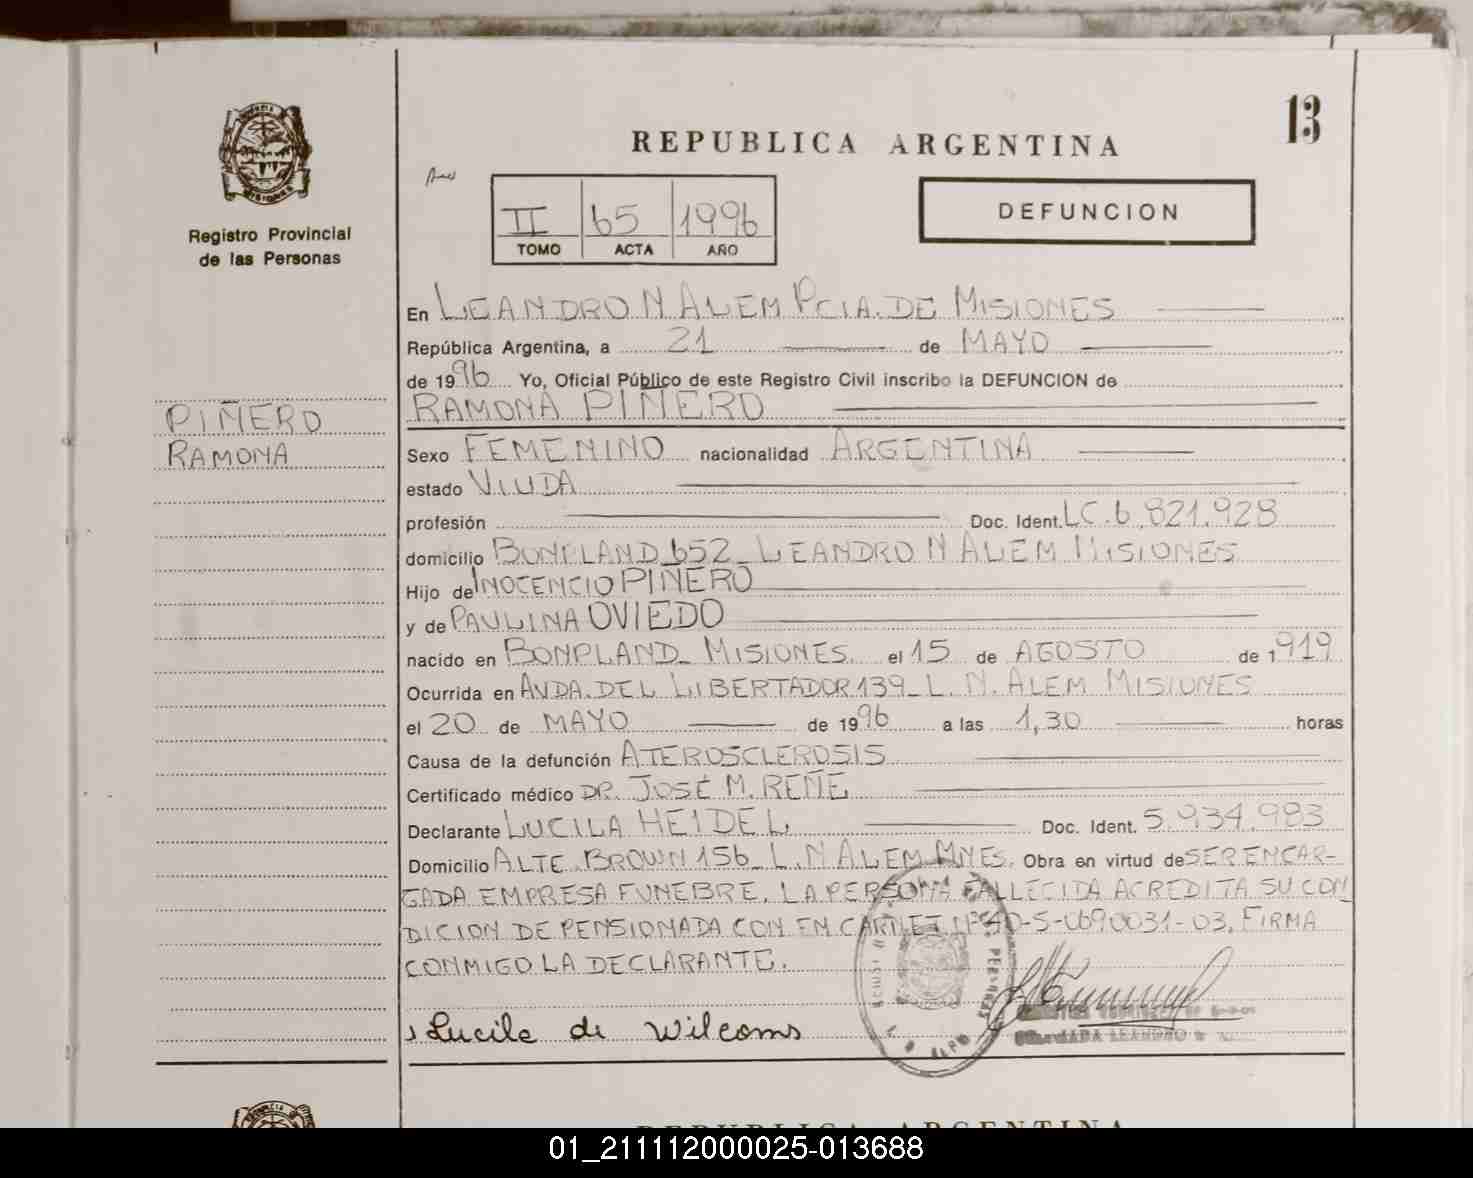 13
REPUBLICA ARGENTINA
II 65 1996
TOMO ACTA AÑO
DEFUNCION
MISIONES
Registro Provincial
de las Personas
PIÑERO
RAMONA
En LEANDRO N ALEM PCIA. DE MISIONES
República Argentina, a 21 de MAYO
de 1996 Yo, Oficial Público de este Registro Civil inscribo la DEFUNCION de
RAMONA PIÑERO
Sexo FEMENINO nacionalidad ARGENTINA
estado VIUDA
profesión Doc. Ident. LC.6.821.928
domicilio BONPLAND 652_LEANDRO N ALEM MISIONES
Hijo de INOCENCIO PIÑERO
y de PAULINA OVIEDO
nacido en BONPLAND_ MISIONES. el 15 de AGOSTO de 1919
Ocurrida en AVDA. DEL LIBERTADOR 139_L.N. ALEM MISIONES
el 20 de MAYO de 1996 a las 1,30 horas
Causa de la defunción ATEROSCLEROSIS
Certificado médico DR. JOSÉ M. REÑE
Declarante LUCILA HEIDEL Doc. Ident. 5.934.983
Domicilio ALTE. BROWN 156_L.N ALEM MNES. Obra en virtud de SER ENCAR-
GADA EMPRESA FUNEBRE. LA PERSONA FALLECIDA ACREDITA SU CON
DICION DE PENSIONADA CON EN CARNET Nº40-5-0690031-03. FIRMA
CONMIGO LA DECLARANTE.
Lucila de Wilcoms
REPUBLICA ARGENTINA
01_211112000025-013688